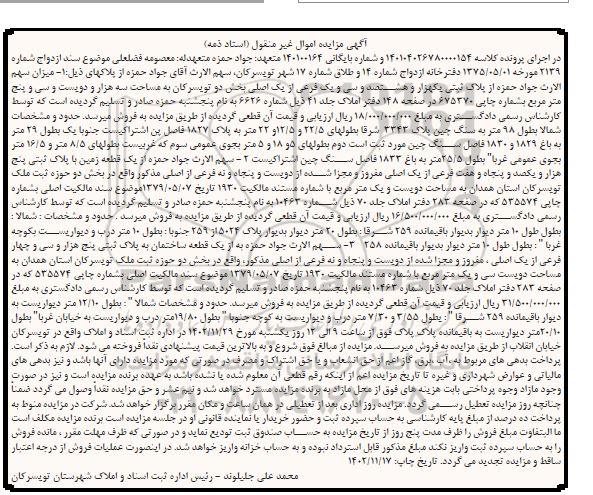 آگهی مزایده اموال غیر منقول (اسناد ذمه)
در اجرای پرونده کلاسه ۱۴۰۱۰۴۰۲۶۷۸۰۰۰۰۱۵۴ و شماره بایگانی ۱۴۰۱۰۰۱۶۴ متعهد: جواد حمزه متعهدله: معصومه فضلعلی موضوع سند ازدواج شماره
۲۱۳۹ مورخه ۱۳۷۵/۰۵/۰۱ دفترخانه ازدواج شماره ۱۴ و طلاق شماره ۱۷ شهر تویسرکان، سهم الارث آقای جواد حمزه از پلاکهای ذیل:۱- میزان سهم
الارث جواد حمزه از پلاک ثبتی یکهزار و هشتصد و سی و یک فرعی از یک اصلی بخش دو تویسرکان به مساحت سه هزار و دویست و سی و پنج
متر مربع بشماره چاپی ۶۷۵۳۷۰ در صفحه ۱۴۸ دفتر املاک جلد ۴۱ ذیل شماره ۶۶۲۶ به نام پنجشنبه حمزه صادر و تسلیم گردیده است که توسط
کارشناس رسمی دادگستری به مبلغ ۱۸/۰۰۰/۰۰۰/۰۰۰ ریال ارزیابی و قیمت آن قطعی گردیده از طریق مزایده به فروش میرسد. حدود و مشخصات
شمالا بطول ۹۸ متر به سنگ چین پلاک ۳۳۴۲ شرقا بطولهای ۲۲/۵ و ۱۲/۵و ۲۲ متر به پلاک ۱۸۲۷ فاصل پن اشتراکیست جنوبا یک بطول ۲۹ متر
به باغ ۱۸۲۹ و ۱۸۳۰ فاصل سنگ چین مورد ثبت است دوم بطولهای ۵و ۱۸ و ۵ متر بجوی عمومی سوم که غربیست بطولهای ۸/۵ متر و ۱۶/۵ متر
بجوی عمومی غربا" بطول ۲۵/۵متر به باغ ۱۸۳۳ فاصل سنگ چین اشتراکیست ۲ – سهم الارث جواد حمزه از یک قطعه زمین با پلاک ثبتی پنج
هزار و یکصد و پنجاه و هفت فرعی از یک اصلی مفروز و مجزا شده از دویست و پنجاه و نه فرعی از اصلی مذکور واقع در بخش دو حوزه ثبت ملک
تویسرکان استان همدان به مساحت دویست و یک متر مربع با شماره مستند مالکیت ۱۹۳۰ تاریخ ۱۳۷۹/۰۵/۰۷موضوع سند مالکیت اصلی بشماره
چاپی ۵۳۵۵۷۴ که در صفحه ۲۸۳ دفتر املاک جلد ۷۰ ذیل شماره ۱۰۴۶۳ به نام پنجشنبه حمزه صادر و تسلیم گردیده است که توسط کارشناس
رسمی دادگستری به مبلغ ۱۶/۵۰۰/۰۰۰/۰۰۰ ریال ارزیابی و قیمت آن قطعی گردیده از طریق مزایده به فروش میرسد. حدود و مشخصات : شمالا :
بطول طول ۱۰ متر دیوار بدیوار باقیمانده ۲۵۹ شرقا: بطول ۲۰ متر دیوار بدیوار پلاک ۵۰۲۴از ۲۵۹ جنوبا : بطول ۱۰ متر درب و دیواریست بکوچه
غربا " : بطول طول ۱۰ متر دیوار بدیوار باقیمانده ۲۵۸ ۳- سهم الارث جواد حمزه به از یک قطعه ساختمان به پلاک ثبتی پنج هزار و سی و چهار
فرعی از یک اصلی ، مفروز و مجزا شده از دویست و پنجاه و نه فرعی از اصلی مذکور، واقع در بخش دو حوزه ثبت ملک تویسرکان استان همدان به
مساحت دویست و سی و یک متر مربع با شماره مستند مالکیت ۱۹۳۰ تاریخ ۱۳۷۹/۰۵/۰۷ موضوع سند مالکیت اصلی بشماره چاپی ۵۳۵۵۷۴ که در
صفحه ۲۸۳ دفتر املاک جلد ۷۰ ذیل شماره ۱۰۴۶۳ به نام پنجشنبه حمزه صادر و تسلیم گردیده است که توسط کارشناس رسمی دادگستری به مبلغ
۳۱/۵۰۰/۰۰۰/۰۰۰ ریال ارزیابی و قیمت آن قطعی گردیده از طریق مزایده به فروش میرسد. حدود و مشخصات شمالا " : بطول ۱۲/۱۰ متر دیواریست به
دیوار باقیمانده ۲۵۹ شرقا " : بطول ۳/۵۵ و ۷/۳۰ متر درب و دیواریست به کوچه جنوبا " بطول ۱۹/۸۰متر، درب و دیواریست به خیابان غربا" بطول
۲۰/۱۰متر دیواریست به باقیمانده پلاک پلاک فوق از ساعت ۹ الی ۱۲ روز یکشنبه مورخ ۱۴۰۲/۱۱/۲۹ در اداره ثبت اسناد و املاک واقع در تویسرکان
خیابان انقلاب از طریق مزایده به فروش میرسد. مزایده از مبالغ فوق شروع و به بالاترین قیمت پیشنهادی نقدا فروخته می شود. لازم به ذکر است.
پرداخت بدهی های مربوط به، آب ،برق، گاز اعم از حق انشعاب و یا حق اشتراک و مصرف در صورتی که مورد مزایده دارای آنها باشد و نیز بدهی های
مالیاتی و عوارض شهرداری و غیره تا تاریخ مزایده اعم از اینکه رقم قطعی آن معلوم شده یا نشده باشد به عهده برنده مزایده است و نیز در صورت
وجود مازاد وجوه پرداختی بابت هزینه های فوق از محل مازاد به برنده مزایده مسترد خواهد شد و نیم عشر و حق مزایده نقداً وصول می گردد ضمنا
چنانچه روز مزایده تعطیل رسمی گردد. مزایده روز اداری بعد از تعطیلی در همان ساعت و مکان مقرر برگزار خواهد شد.شرکت در مزایده منوط به
پرداخت ده درصد از مبلغ پایه کارشناسی به حساب سپرده ثبت و حضور خریدار یا نماینده قانونی او در جلسه مزایده است برنده مزایده مکلف است
ما التفاوت مبلغ فروش را ظرف مدت پنج روز از تاریخ مزایده به حساب صندوق ثبت تودیع نماید و در صورتی که ظرف مهلت مقرر ، مانده فروش
را به حساب سپرده ثبت واریز نکند مبلغ مذکور قابل استرداد نبوده و به حساب خزانه واریز خواهد شد. در اینصورت عملیات فروش از درجه اعتبار
ساقط و مزایده تجدید می گردد. تاریخ چاپ: ۱۴۰۲/۱۱/۱۷
محمد علی جلیلوند – رئیس اداره ثبت اسناد و املاک شهرستان تویسرکان